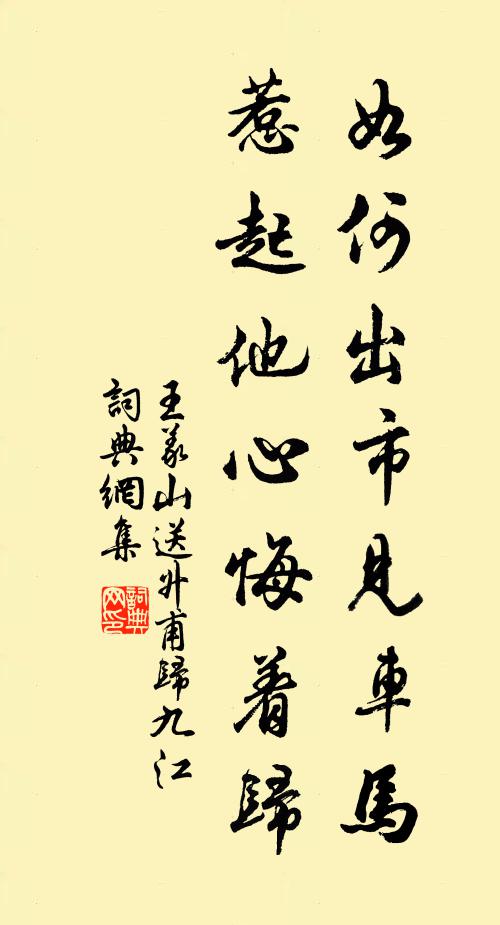 如何出市見車馬
惹起他心悔着歸
王義山送升甫歸九江
詞典網集
詞典
网印